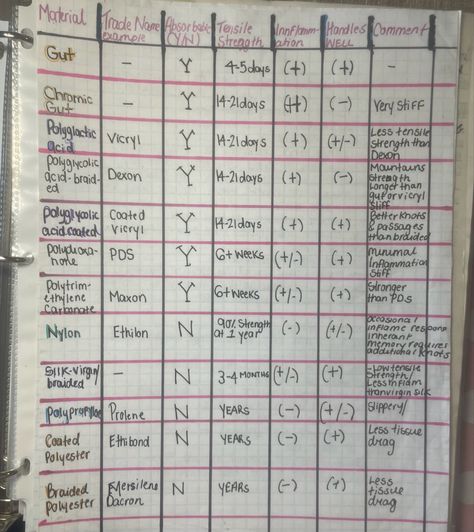 Material Trade Name example Absorbable (Y/N) Tensile Strength Innflammation Handles WELL Comment
Gut – Y 4-5days (+) (+) –
Chromic Gut – Y 14-21days (++) (–) Very stiff
Polyglactic acid Vicryl Y 14-21days (+) (+/-) Less tensile strength than Dexon
Polyglycolic acid-braided Dexon Y 14-21days (+) (–) Mountains strength longer than gut or vicryl stiff
Polyglycolic acid coated Coated Vicryl Y 14-21days (+) (+) Better knots & passages than braided
PDS Y 6+ weeks (+/-) (+) minimal inflammation stiff
Polytrimethylene Carbonate Maxon Y 6+weeks (+/-) (+) Stronger than PDS
Nylon Ethilon N 90% strength at 1 year (–) (+/-) occasional inflame response inherant memory requires additional knots
Silk-virgin/braided – N 3-4 MONTHS (+/-) (+) -Low tensile strength/Less inflam than virgin silk
Prolene N YEARS (–) (+/-) slippery/
Coated Polyester Ethibond N YEARS (–) (+) Less tissue drag
Braided polyester Dacron N YEARS (–) (+) Less tissue drag